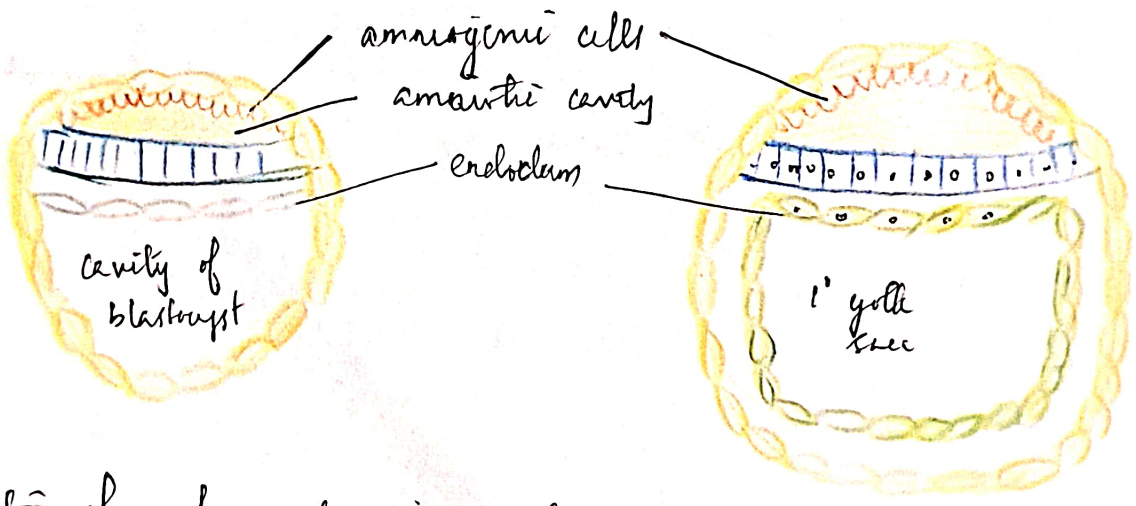 amniogenic cells
amniotic cavity
endoderm
cavity of
blastocyst
1° yolk
sac